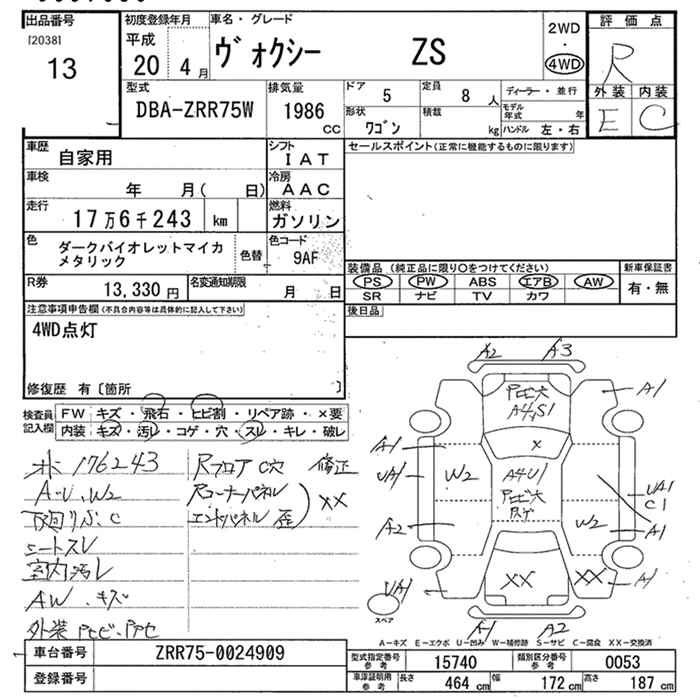 出品番号
[2038]
13
初度登録年月
平成
20 4月
車名・グレード
ヴォクシー ZS
2WD
・
4WD
評価点
R
外装 内装
E C
型式
DBA-ZRR75W
排気量
1986
CC
ドア
5
定員
8人
ディーラー・並行
形状
ワゴン
積載
kg
モデル年式 年
ハンドル 左・右
車歴
自家用
シフト
IAT
車検
年 月( 日)
冷房
AAC
走行
17万6千243 km
燃料
ガソリン
色
ダークバイオレットマイカ
メタリック
色替
色コード
9AF
R券
13,330円
名変通知期限
月 日
セールスポイント(正常に機能するものに限ります)
装備品 (純正品に限り○をつけてください)
PS PW ABS エアB AW
SR ナビ TV カワ
新車保証書
有・無
後日品
注意事項申告欄(不具合内容等は具体的に記入して下さい)
4WD点灯
修復歴 有〔箇所 〕
検査員記入欄
FW キズ・飛石・ヒビ割・リペア跡・×要
内装 キズ・汚レ・コゲ・穴・スレ・キレ・破レ
176243
A・U、W2
下廻りサビ、C
シートスレ
室内汚レ
AW、キズ
外装
Rフロア C穴 修正
Rコーナーパネル
エンドパネル 歪) XX
A2 A3
A4S1
A1
X
A1
UA1
W2
A4U1
UA1
C1
A2
W2
A1
UA1
XX
XX
A1
スペア
A1 A2
A-キズ E-エクボ U-凹み W-補修跡 S-サビ C-腐食 XX-交換済
車台番号
ZRR75-0024909
登録番号
型式指定番号 参考
15740
類別区分番号 参考
0053
車庫証明用 参考
長さ 464 cm
幅 172 cm
高さ 187 cm